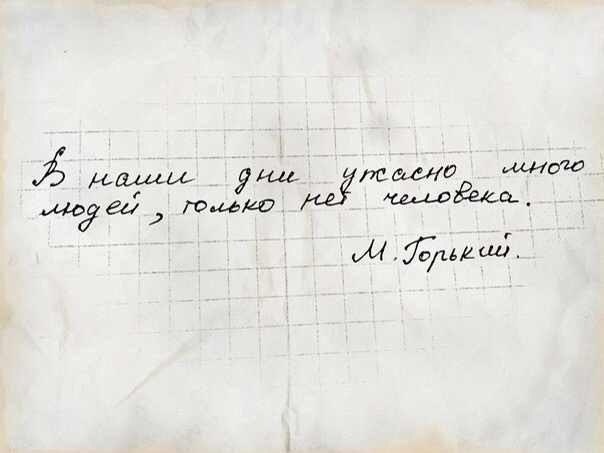 В наши дни ужасно много
людей, только нет человека.
М. Горький.